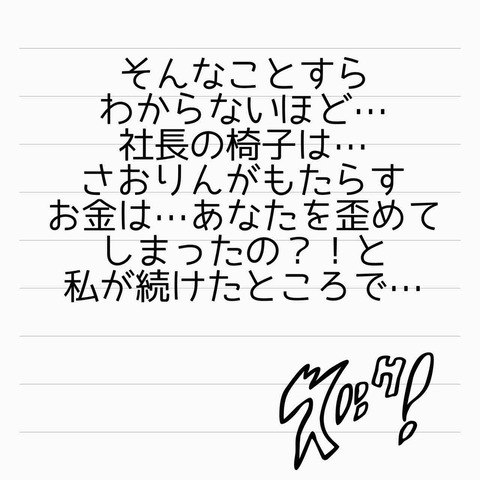 そんなことすら
わからないほど…
社長の椅子は…
さおりんがもたらす
お金は…あなたを歪めて
しまったの？！と
私が続けたところで…